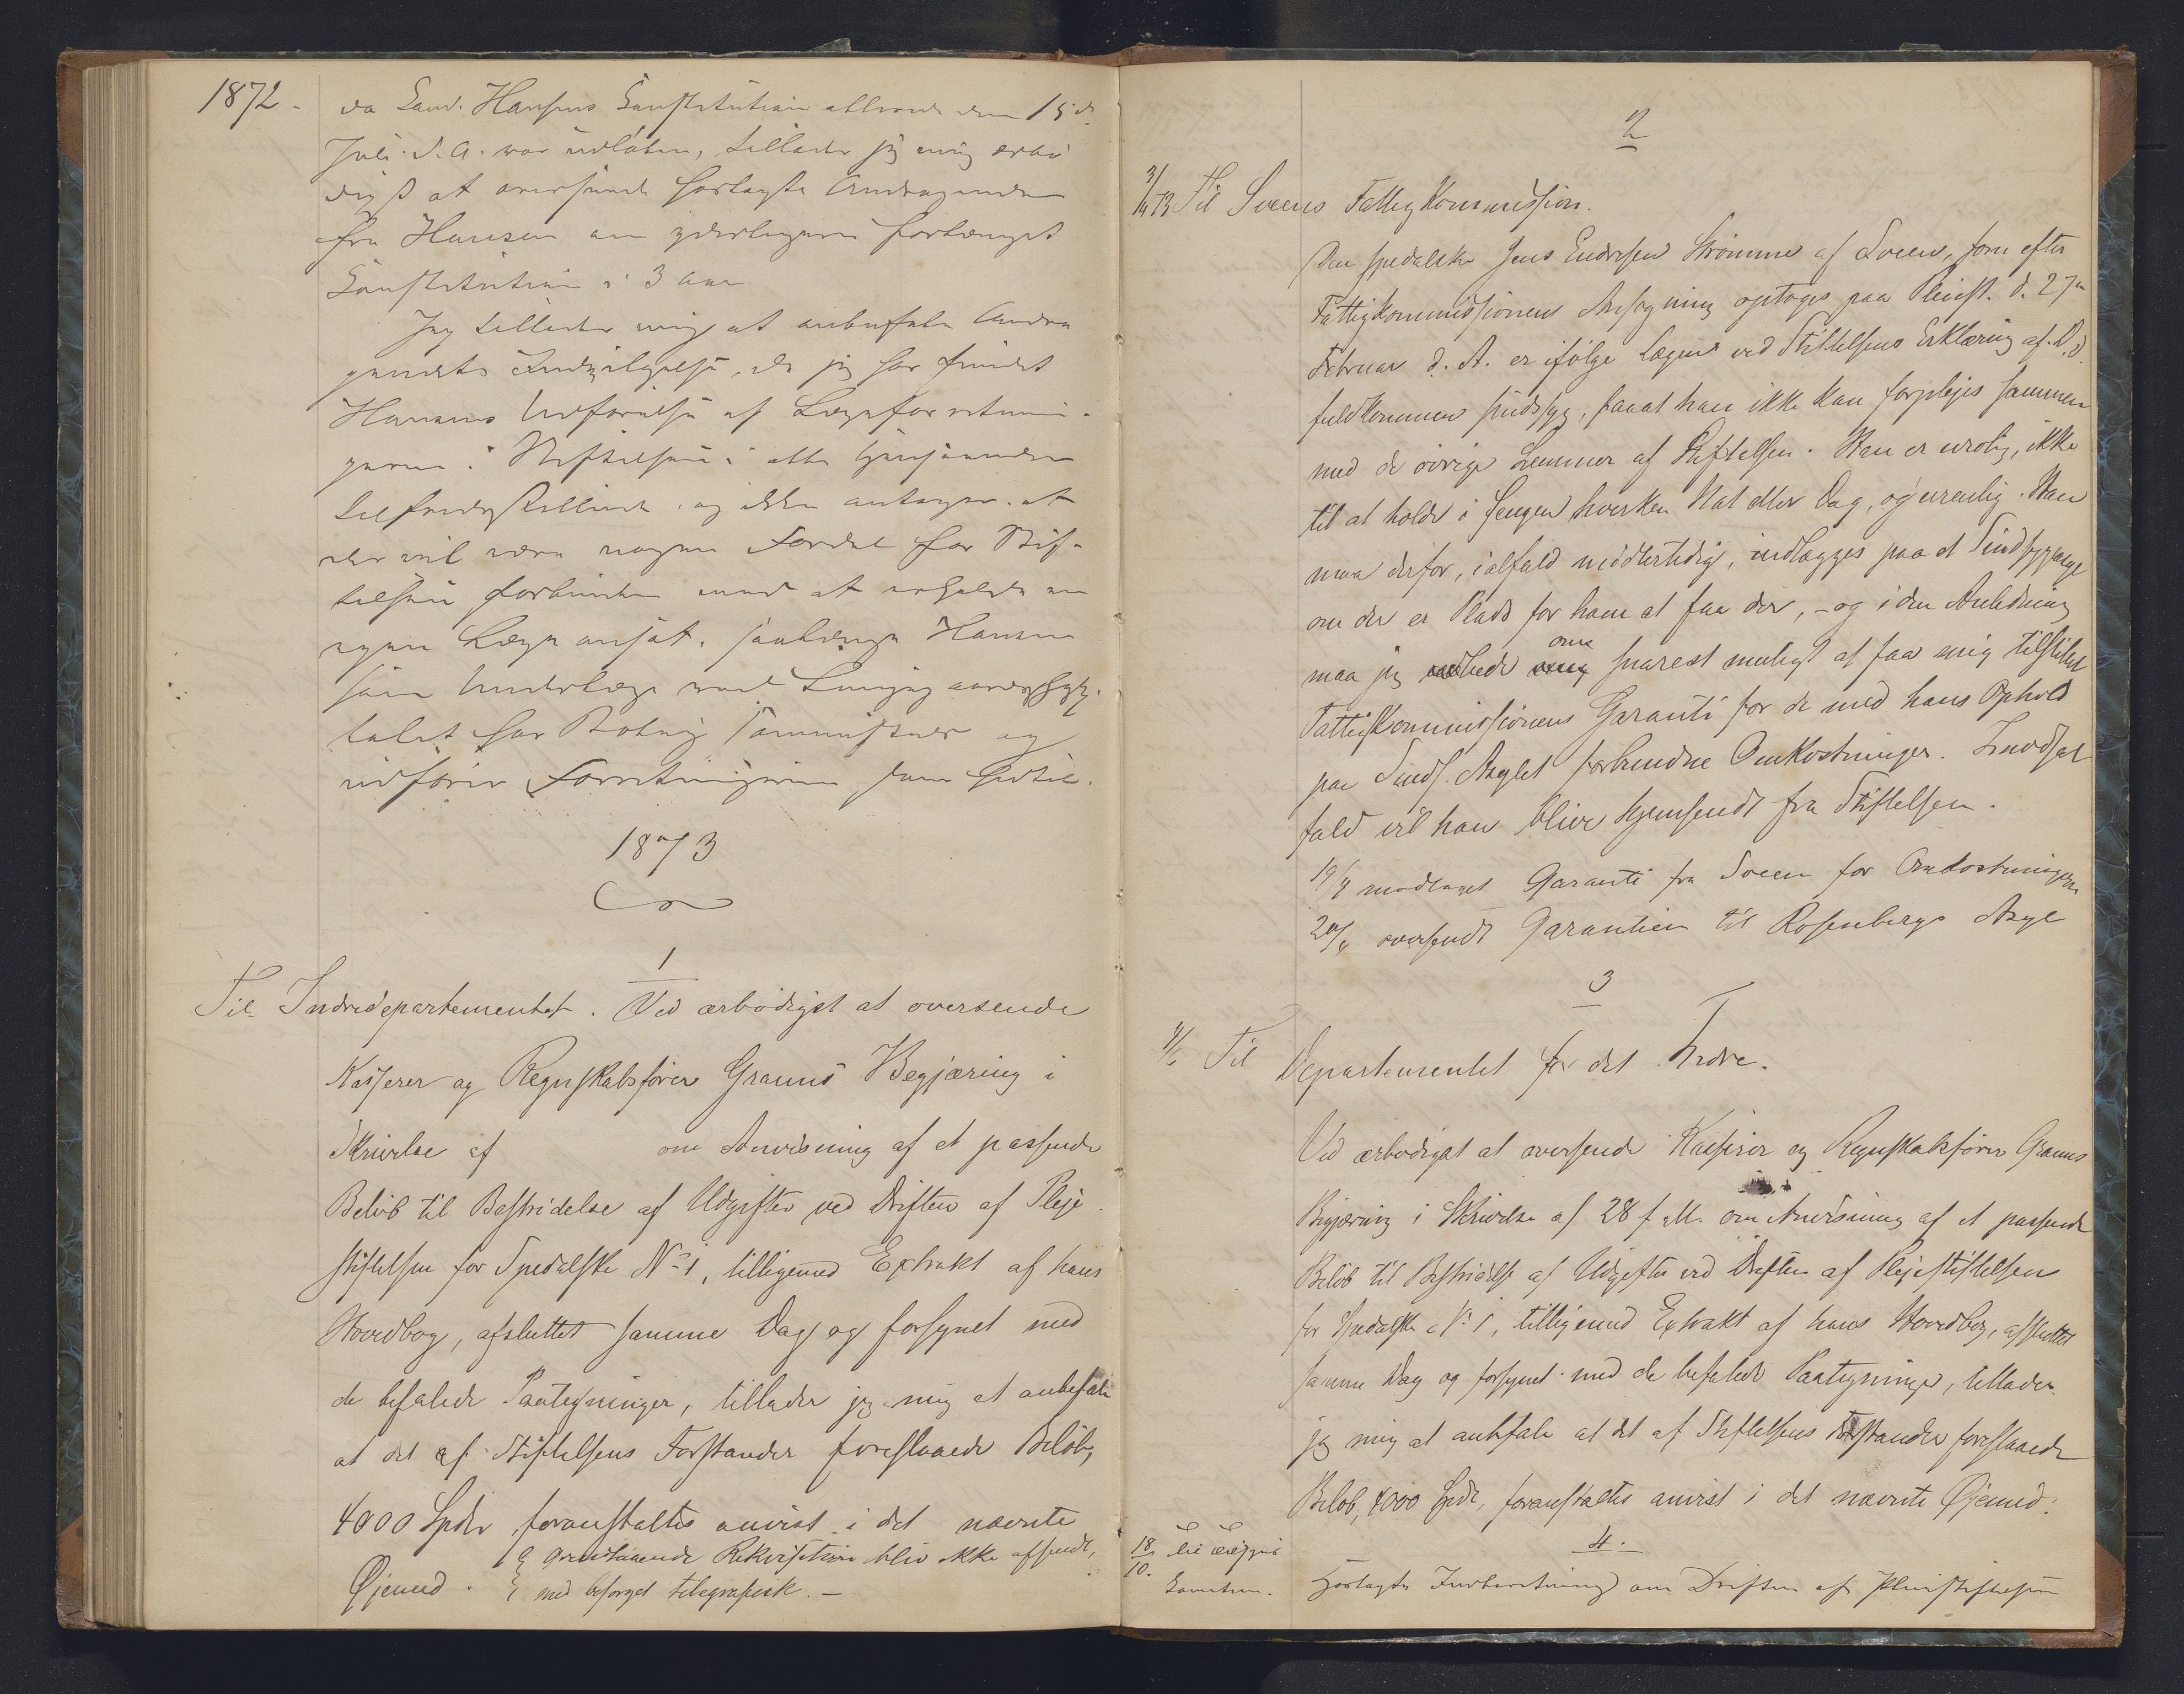 1872.
da Cand. Hansens Constitution allerede den 15de
Juli d. A. var udløben, tillader jeg mig ærbø
digst at oversende hoslagte Andragende
fra Hansen om yderligere forlænget
Constitution i 3 Aar
Jeg tillader mig at anbefale Andra
gendets Indvilgelse, da jeg har fundet
Hansens Udførelse af Lægeforretnin-
gerne i Stiftelsen i alle Henseender
tilfredsstillende og ikke antager at
der vil være nogen Fordel for Stif-
telsen forbunden med at erholde en
egen Læge ansat, saalænge Hansen
som Underlæge ved Lungegaardshospi-
talet har Bolig sammesteds og
udfører Forretningerne som hidtil.
1873
1
Til Indredepartementet. Ved ærbødigst at oversende
Kasserer og Regnskabsfører Grams Begjæring i
Skrivelse af om Anvisning af et passende
Beløb til Bestridelse af Udgifter ved Driften af Pleje
stiftelsen for Spedalske No 1, tilligemed Extrakt af hans
Hovedbog, afsluttet samme Dag og forsynet med
de befalede Paategninger, tillader jeg mig at anbefale
at det af Stiftelsens Forstander foreslaaede Beløb,
4000 Spdlr foranstaltes anvist i det nævnte
Øjemed.
Ovenstaaende Rekvisition blev ikke afsendt,
med besørget telegrafisk. —
2
3/4 73 Til Sveens Fattigkommission.
Den spedalske Jens Endresen Strømme af Sveen, som efter
Fattigkommissionens Ansøgning optoges paa Pleiest. d. 27de
Februar d. A. er ifølge Lægens ved Stiftelsens Erklæring af D. D.
fuldkommen sindssyg, saaat han ikke kan forplejes sammen
med de øvrige Lemmer af Stiftelsen. Han er urolig, ikke
til at holde i Sengen hverken Nat eller Dag, og urenlig. Han
maa derfor, ialfald midlertidig, indlægges paa et Sindssygeasyl
om der er Plads for ham at faa der, – og i den Anledning
maa jeg udbede om snarest muligt at faa mig tilstillet
Fattigkommissionens Garanti for de med hans Ophold
paa Sinds. Asylet forbundne Omkostninger. I modsat
fald vil han blive hjemsendt fra Stiftelsen.
19/4 modtaget Garanti fra Sveen for Omkostningerne
20/4 oversendt Garantien til Rosenbergs Asyl
3
Til Departementet for det Indre.
Ved ærbødigst at oversende Kasserer og Regnskabsfører Grams
Begjæring i Skrivelse af 28 f. M. om Anvisning af et passende
Beløb til Bestridelse af Udgifter ved Driften af Plejestiftelsen
for Spedalske No 1, tilligemed Extrakt af hans Hovedbog, afsluttet
samme Dag og forsynet med de befalede Paategninger, tillader
jeg mig at anbefale at det af Stiftelsens Forstander foreslaaede
Beløb, 4000 Spdl, foranstaltes anvist i det nævnte Øjemed.
4.
18/10.
Hoslagte Indberetning om Driften af Pleiestiftelsen